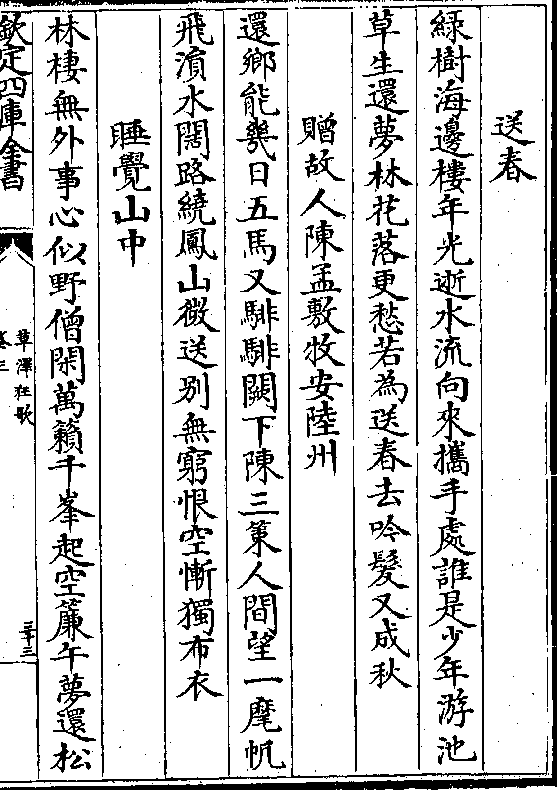 送春
緑樹海邊樓年光逝水流向來攜手處誰是少年游池
草生還夢林花落更愁若為送春去吟髮又成秋
贈故人陳孟敷牧安陸州
還鄉能幾日五馬又騑騑闕下陳三策人間望一麾帆
飛湏水闊路繞鳳山微送别無窮恨空慚獨布衣
睡覺山中
林棲無外事心似野僧閑萬籟千峯起空簾午夢還松
欽定四庫全書
草澤狂歌
卷三
三十三